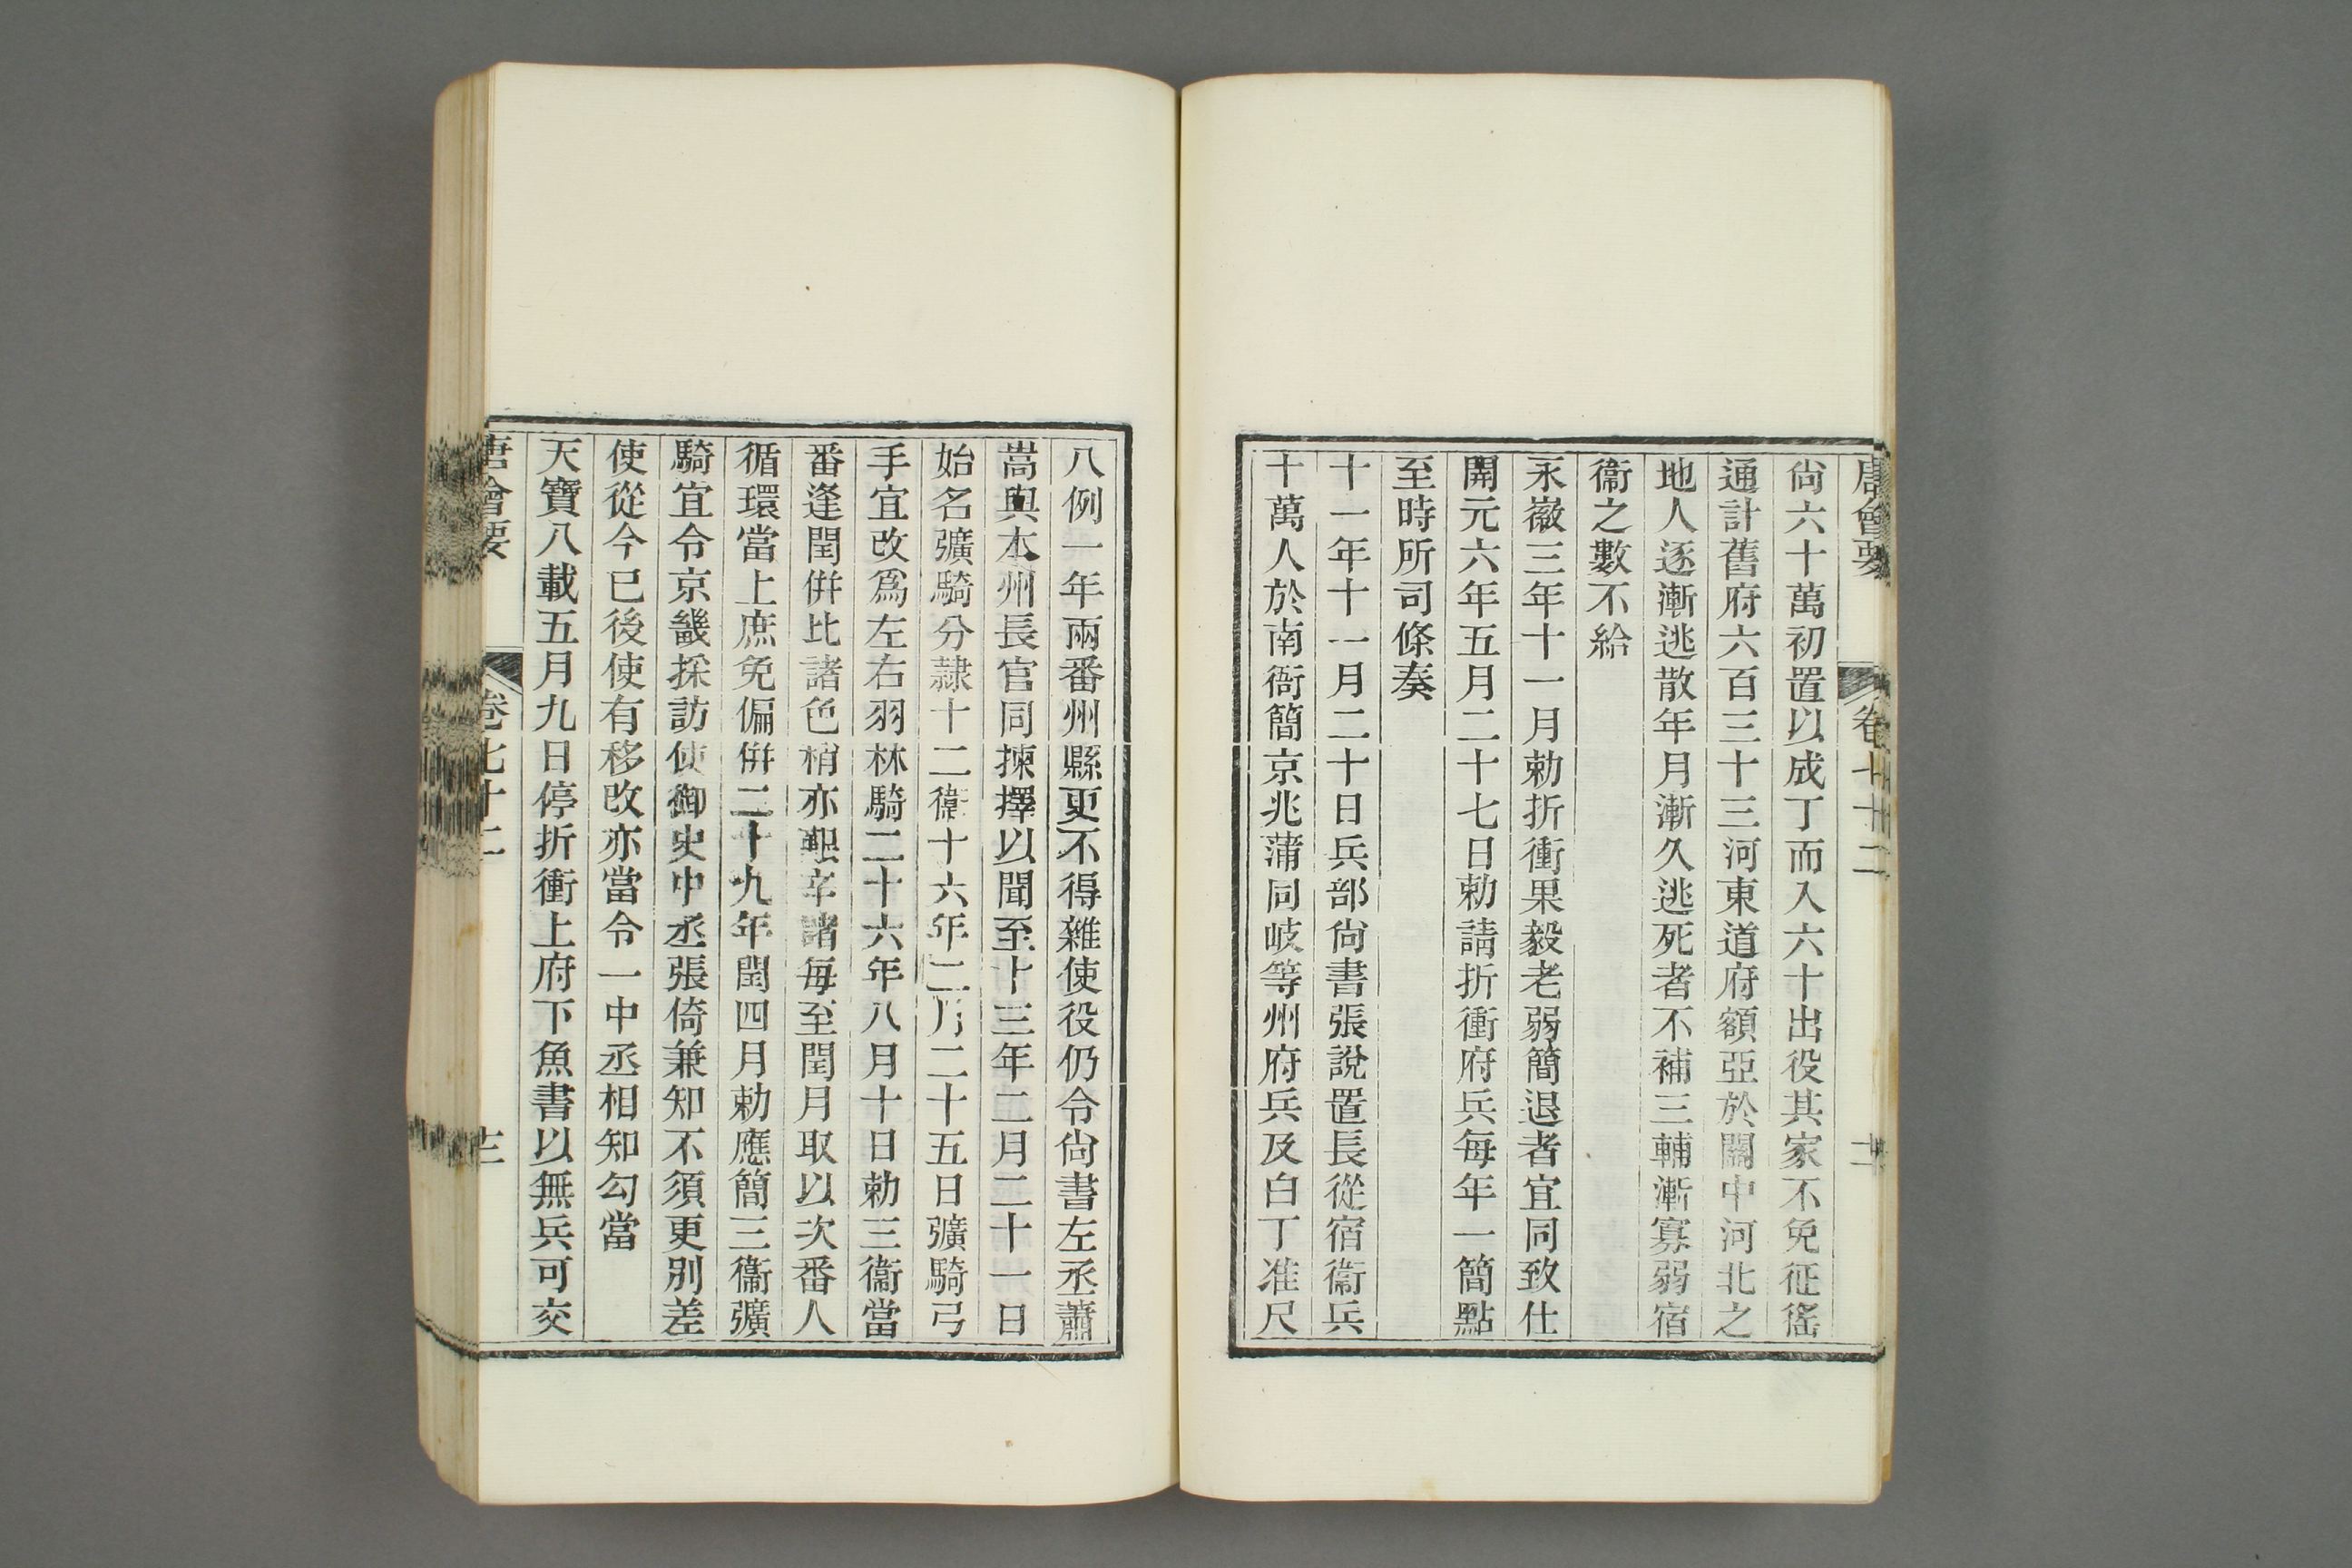 唐會要 卷七十二 十二
尙六十萬初置以成丁而入六十出役其家不免征徭
通計舊府六百三十三河東道府額亞於關中河北之
地人逐漸逃散年月漸久逃死者不補三輔漸寡弱宿
衞之數不給
永徽三年十一月勅折衝果毅老弱簡退者宜同致仕
開元六年五月二十七日勅諸折衝府兵每年一簡點
至時所司條奏
十一年十一月二十日兵部尙書張說置長從宿衞兵
十萬人於南衙簡京兆蒲同岐等州府兵及白丁准尺
八例一年兩番州縣更不得雜使役仍令尙書左丞蕭
嵩與本州長官同揀擇以聞至十三年二月二十一日
始名彍騎分隸十二衞十六年二月二十五日彍騎弓
手宜改爲左右羽林騎二十六年八月十日勅三衞當
番逢閏倂比諸色稍亦艱辛諸每至閏月取以次番人
循環當上庶免偏倂二十九年閏四月勅應簡三衞彍
騎宜令京畿採訪使御史中丞張倚兼知不須更別差
使從今已後使有移改亦當令一中丞相知勾當
天寶八載五月九日停折衝上府下魚書以無兵可交
唐會要 卷七十二